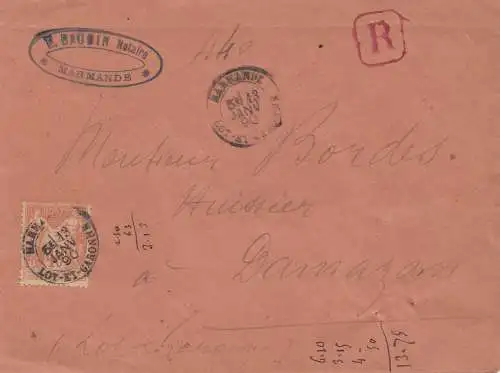 E. BAUDIN Notaire
* MARMANDE *
R
440
MARMANDE
5E/13
JANV
90
LOT-ET-GARONNE
Monsieur Bordes.
Huissier
à
Damazan
(Lot & Garonne)
MARMANDE
5E/13
JANV
90
LOT-ET-GARONNE
2.13
6.10
3.15
4-50
13.75